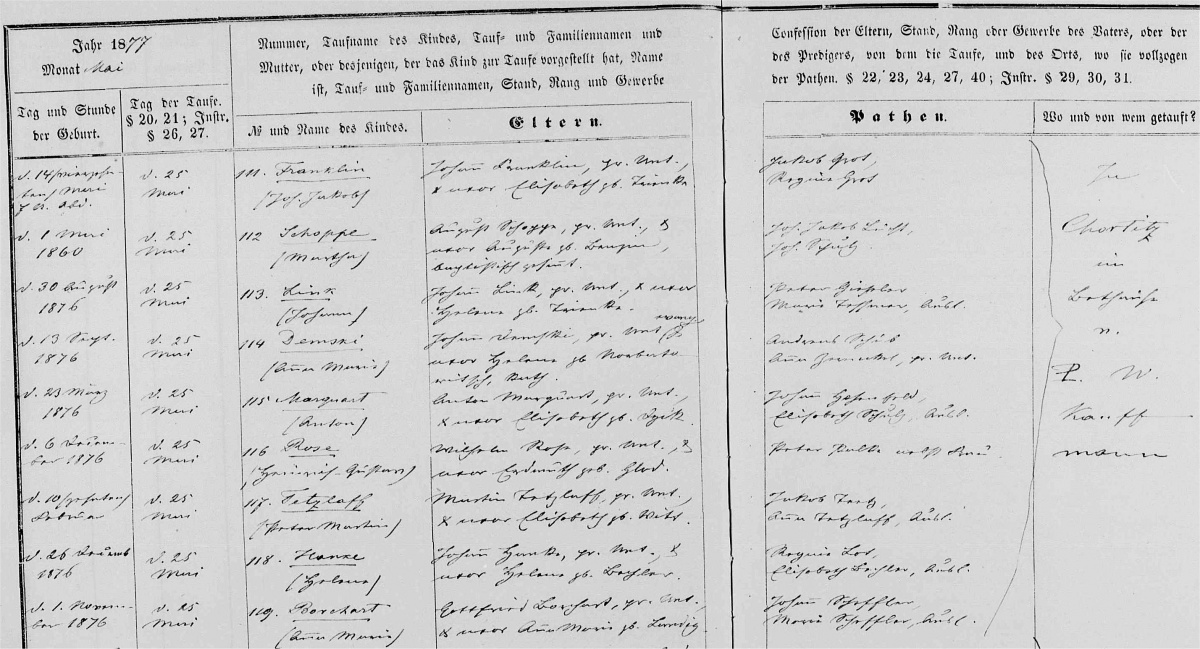 Jahr 1877
Monat Mai
Nummer, Taufname des Kindes, Tauf- und Familiennamen und
Mutter, oder desjenigen, der das Kind zur Taufe vorgestellt hat, Name
ist, Tauf- und Familiennamen, Stand, Rang und Gewerbe
Confession der Eltern, Stand, Rang oder Gewerbe des Vaters, oder der
des Predigers, von dem die Taufe, und des Orts, wo sie vollzogen
der Pathen. § 22, 23, 24, 27, 40; Instr. § 29, 30, 31.
Tag und Stunde
der Geburt.
Tag der Taufe.
§ 20, 21; Instr.
§ 26, 27.
№ und Name des Kindes.
Eltern.
Pathen.
Wo und von wem getauft?
d. 14
Mai
7 U. Abd.
d. 25
Mai
111. Franklin
(Joh. Jakob)
Johann Franklin, pr. Unt.,
& uxor Elisabeth gb. Trienke
Jakob Gros,
Regine Gros
In
d. 1 Mai
1860
d. 25
Mai
112 Schoppe
(Martha)
August Schoppe, pr. Unt., &
uxor Auguste gb.
baptistisch gesinnt.
Joh. Jakob
Joh. Schulz
Chortitz
im
d. 30 August
1876
d. 25
Mai
113. Link
(Johann)
Johann Link, pr. Unt., & uxor
Helene gb. Trienke.
Peter Gießler
Marie
Bethause
d. 13 Sept.
1876
d. 25
Mai
114 Demski
(Anna Marie)
Johann Demski, pr. Unt. &
uxor Helene gb
Kath.
Andreas Schüb
Anna pr. Unt.
v.
P. W.
d. 23 März
1876
d. 25
Mai
115 Marquart
(Anton)
Anton Marquart, pr. Unt.,
& uxor Elisabeth gb.
Johann
Elisabeth Schulz,
Kauff
d. 6 Dezem-
ber 1876
d. 25
Mai
116 Rose
(Heinrich Gustav)
Wilhelm Rose, pr. Unt., &
uxor Erdmuth geb. Glod.
Peter
mann
d. 10
Februar
d. 25
Mai
117. Tetzlaff
(Peter Martin)
Martin Tetzlaff, pr. Unt.,
& uxor Elisabeth gb.
Jakob
Anna Tetzlaff,
d. 26 Dezemb
1876
d. 25
Mai
118. Hanke
(Helene)
Johann Hanke, pr. Unt., &
uxor Helene gb. Bechler.
Regine
Elisabeth Bechler,
d. 1. Novem-
ber 1876
d. 25
Mai
119. Borchart
(Anna Marie)
Gottfried Borchart, pr. Unt.,
& uxor Anna Marie gb.
Johann Scheffler,
Marie Scheffler,